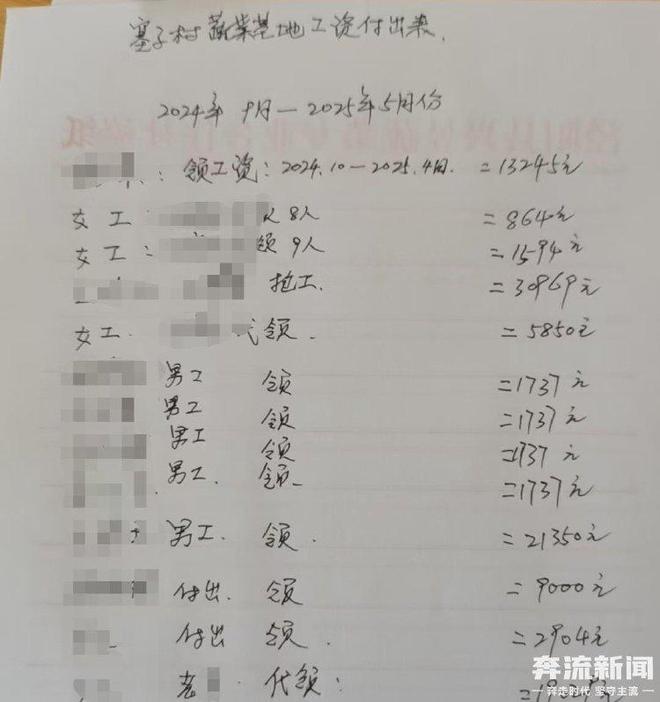 寨子村蔬菜基地工资付出表.
2024年9月—2025年5月份
: 领工资: 2024.10—2025.4月. =13245元
女工 8人 =864元
女工: 领9人 =1594元
抢工. =30969元
女工 代领. =5850元
男工 领 =1737元
男工 领 =1737元
男工 领 =1737元
男工. 领 =1737元
男工. 领. =21350元
付出. 领 =9000元
付出 领. =2904元
老 代领:
奔流新闻
奔走时代 坚守主流